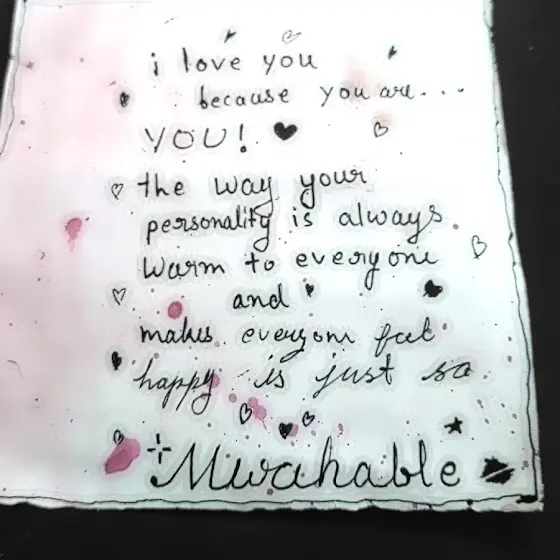 i love you
because you are...
YOU!
the way your
personality is always
warm to everyone
and
makes everyone feel
happy is just so
Mwahable